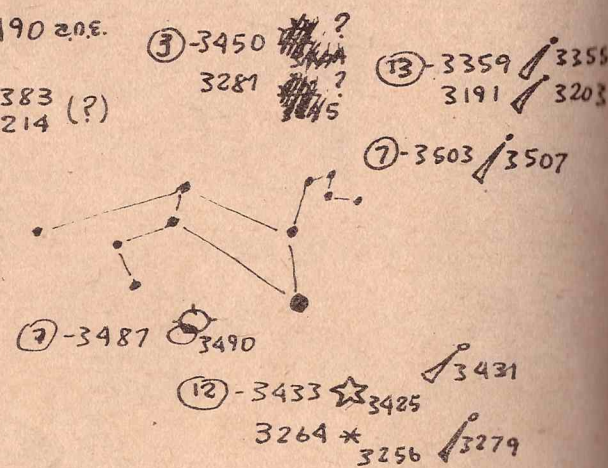 190 
③-3450 ?
3281 ?
⑬-3359 3355
3191 3203
383
214 (?)
⑦-3503 3507
⑦-3487 3490
3431
⑫-3433 3425
3264 * 3256 3279